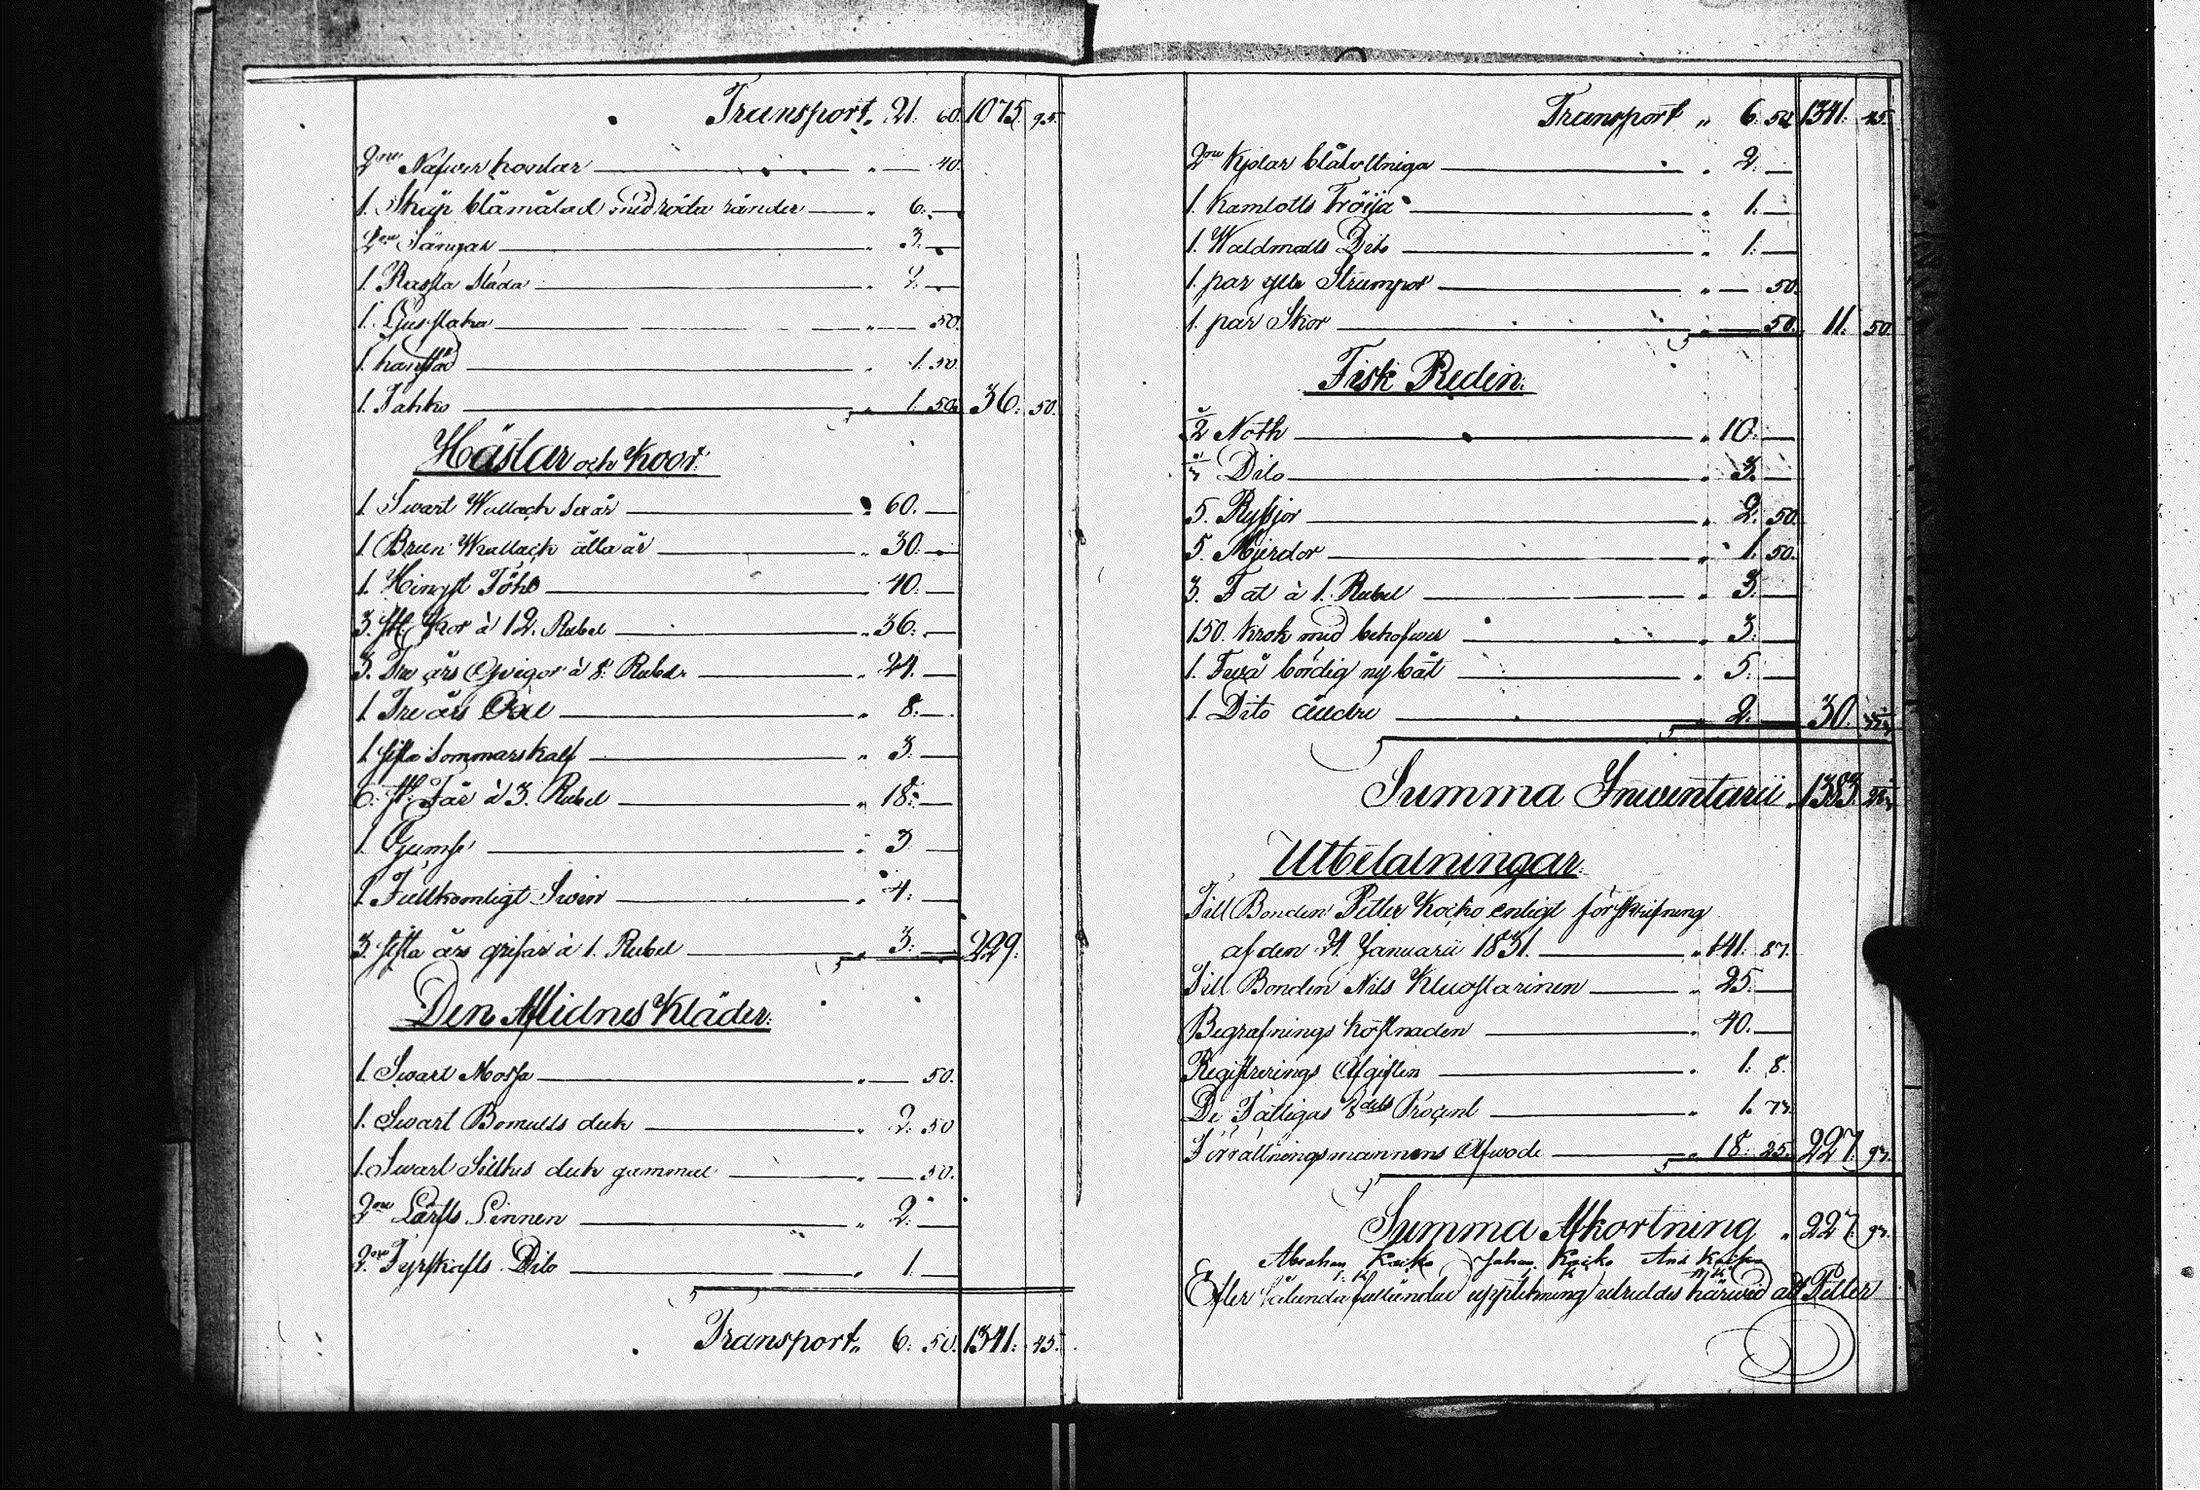 Transport „ 21. 60. 1075. 95.
2ne Näfver kontar „ — 40.
1. Skåp blåmålad med röda ränder „ 6. —
2ne Sängar „ 3. —
1. Släda „ 2. —
1. Ljusstaka „ — 50.
1. „ 1. 50.
1. Tahko „ 1. 50. 36. 50.
Hästar och Koor.
1. Swart Wallack sex år „ 60. —
1. Brun Wallack åtta år „ 30. —
1. Hingst Föhl „ 40. —
3. st. Kor à 12. Rubel „ 36. —
3. Tre års Qvigor à 8. Rubel „ 24. —
1. Tre års Oxe „ 8. —
1. sista Sommars kalf „ 3. —
6. st. Får à 3. Rubel „ 18. —
1. Gumse „ 3. —
1. Fullkomligt Swin „ 4. —
3. sista års grisar à 1. Rubel „ 3. — 229.
Den Aflidnes Kläder.
1. Swart Mössa „ — 50.
1. Swart Bomulls duk „ 2. 50
1. Swart Silkes duk gammal „ — 50.
2ne Lärfts Linnen „ 2. —
2ne Fyrskafts Dito „ 1. —
Transport „ 6. 50. 1341. 45.
Transport „ 6. 50. 1341. 45.
2ne Kjolar blåvoltniga „ 2. —
1. Kamlotts Tröija „ 1. —
1. Waldmalls Dito „ 1. —
1. par ylle Strumpor „ — 50.
1. par Skor „ — 50. 11. 50.
Fisk Redin.
1/2 Noth „ 10. —
Dito „ 3. —
5. Ryssjor „ 2. 50.
5. Mjerdor „ 1. 50.
3. Fat à 1. Rubel „ 3. —
150. Krok med behofwer „ 3. —
1. Två bördig ny båt „ 5. —
1. Dito äldre „ 2. — 30.
Summa Inventarii „ 1383.
Utbetalningar.
Till Bonden Petter Koiko enligt förskrifning
af den 21. Januarii 1831. „ 141. 87.
Till Bonden Nils Kluostarinen „ 25. —
Begrafnings kostnaden „ 40. —
Registrerings Afgiften „ 1. 8.
De Fattigas 8dels Procent „ 1. 73.
Förrättningsmannens Arfwode „ 18. 25. 227. 93.
Summa Afkortning „ 227. 93.
Abraham Koiko Johan Koiko And Koiko
Efter sålunda fulländad uppteckning utreddes härwid att Petter